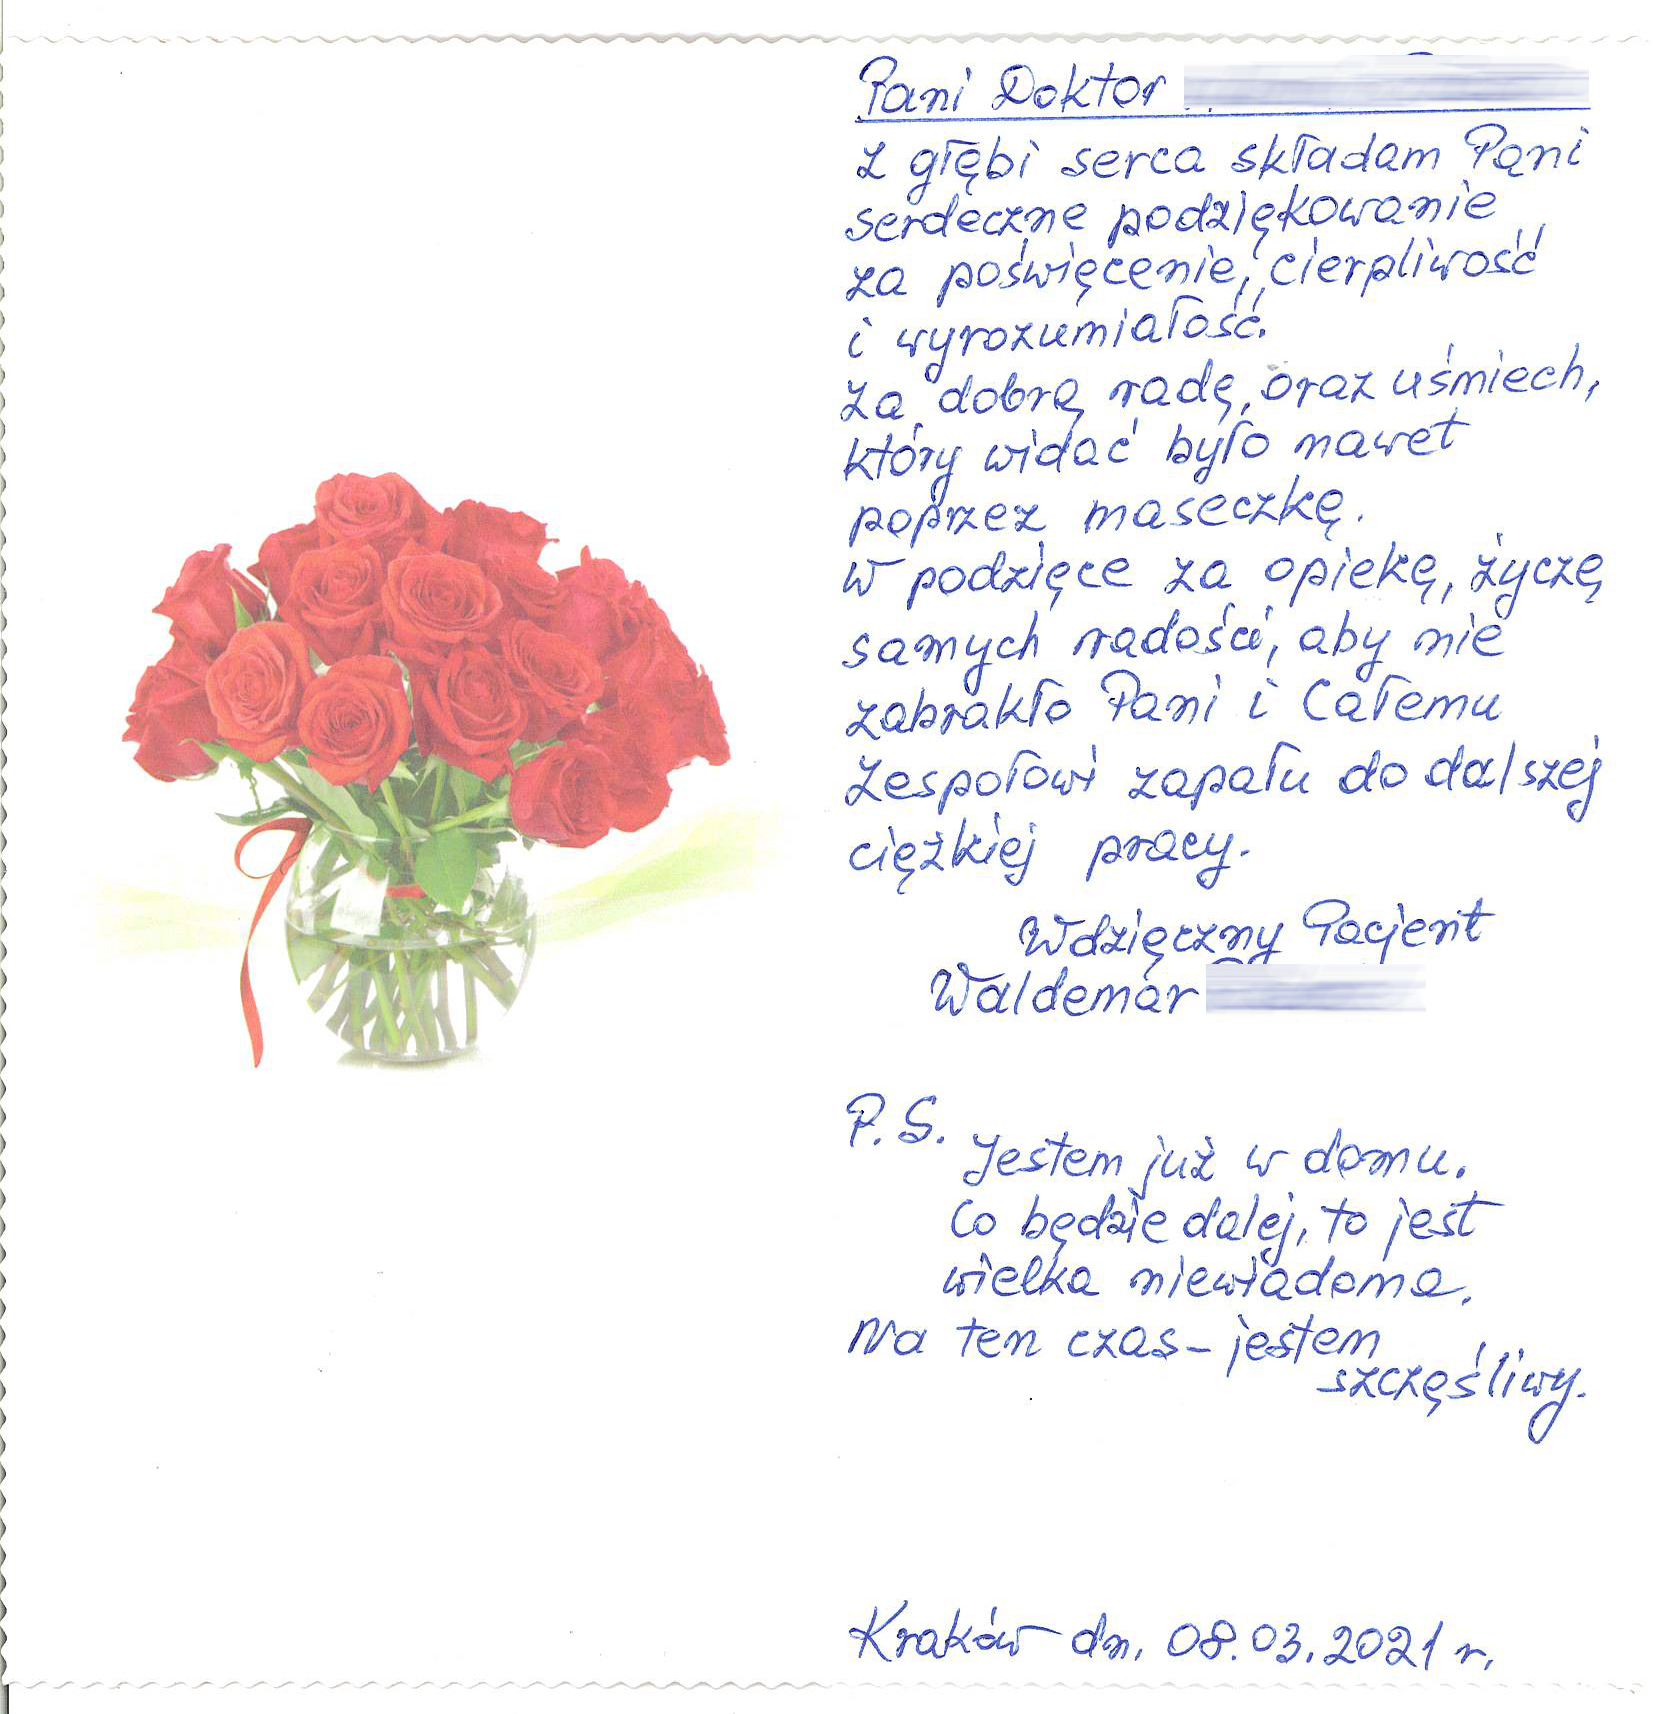 Pani Doktor
Z głębi serca składam Pani
serdeczne podziękowanie
za poświęcenie, cierpliwość
i wyrozumiałość.
Za dobrą radę, oraz uśmiech,
który widać było nawet
poprzez maseczkę.
W podzięce za opiekę, życzę
samych radości, aby nie
zabrakło Pani i Całemu
Zespołowi zapału do dalszej
ciężkiej pracy.
Wdzięczny Pacjent
Waldemar
P.S.
Jestem już w domu.
Co będzie dalej, to jest
wielka niewiadoma.
Na ten czas - jestem
szczęśliwy.
Kraków dn. 08.03.2021 r.